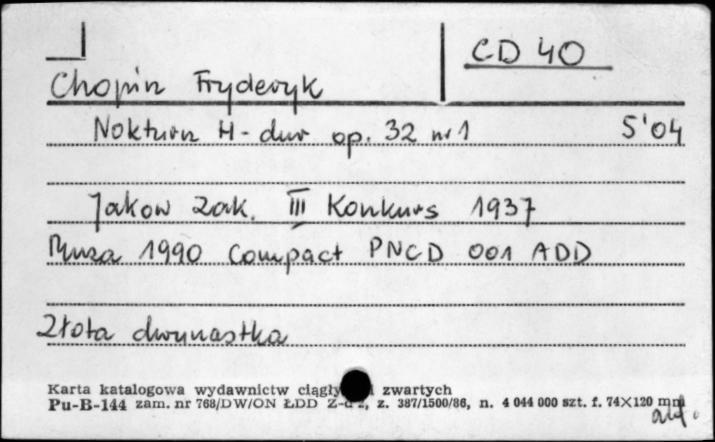 CD 40
Chopin Fryderyk
Nokturn H-dur op. 32 nr 1 5'04
Jakow Zak. III Konkurs 1937
Muza 1990 Compact PNCD 001 ADD
Złota dwunastka
Karta katalogowa wydawnictw zwartych
Pu-B-144 zam. nr 768/DW/ON ŁDD z. 387/1500/86, n. 4 044 000 szt. f. 74×120 mm